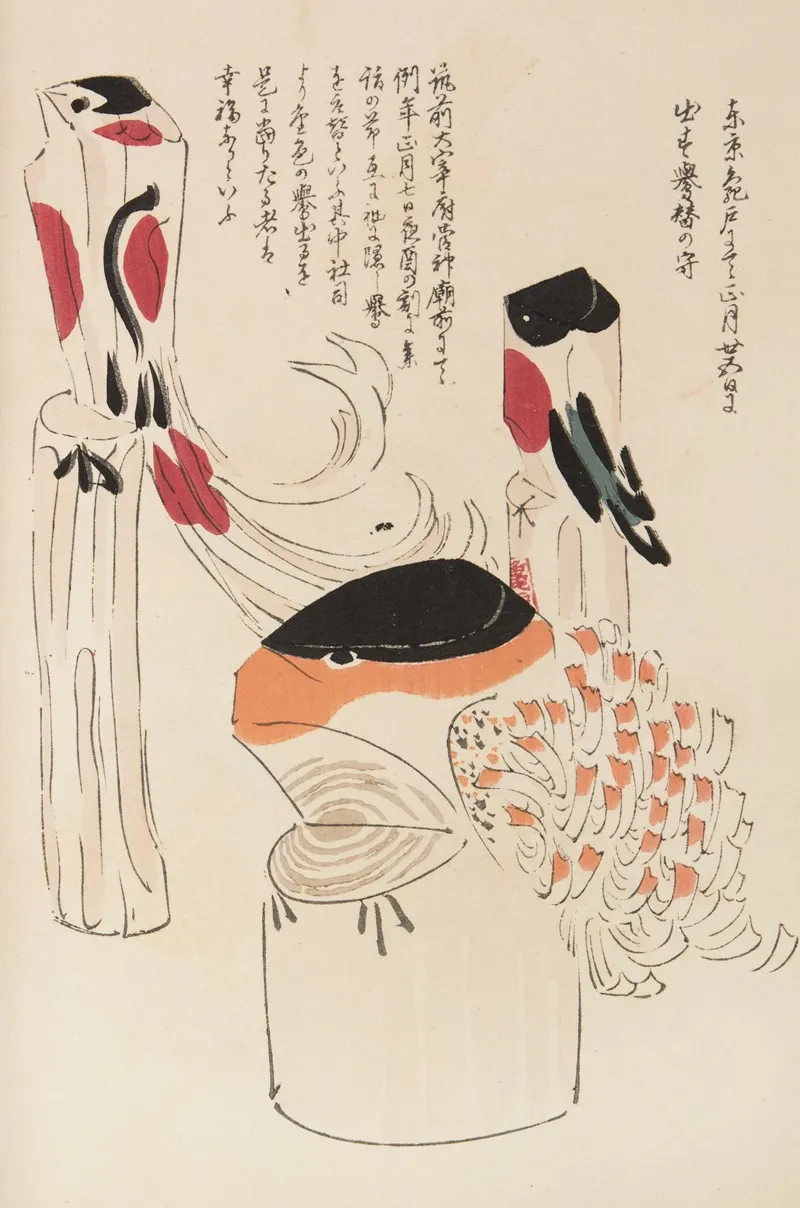 東京亀戸にて正月廿五日に
出す鷽替の守
筑前大宰府菅神廟前にて
例年正月七日夜酉の刻に
詣の節互に袖に隠し鷽
を替といふ其中社司
より金色の鷽出るを
是に当りたる者は
幸福ありといふ